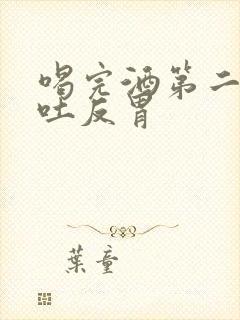 喝完酒第二
吐反胃
葉童